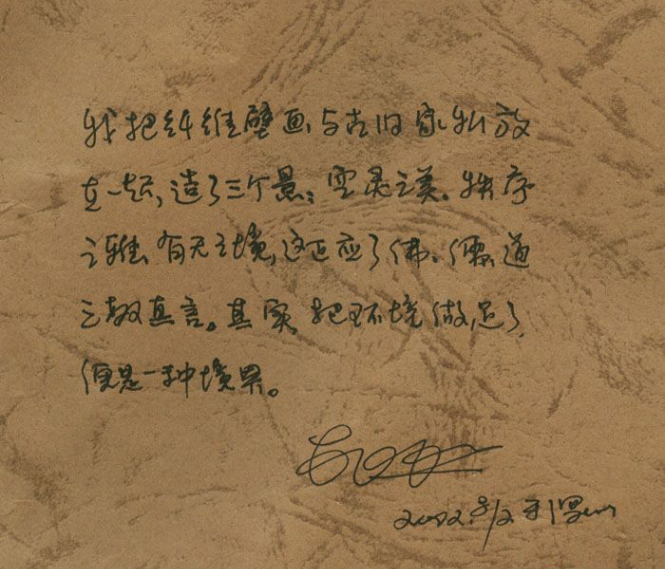 我把纤维壁画与古旧家私放
在一起,造了三个景:空灵之美、秩序
之雅、有无之境,这正应了佛、儒、道
三教真言。其实把环境做足了
便是一种境界。
2002.8/2 于